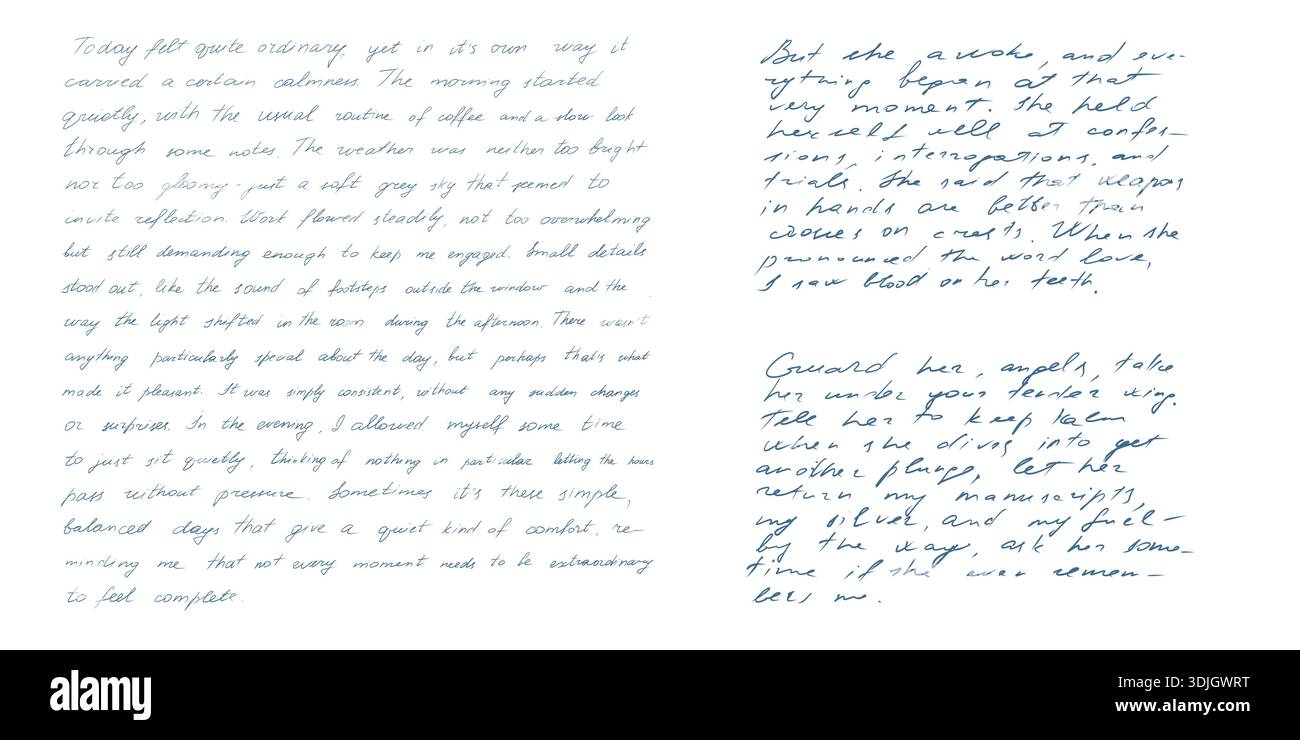 Today felt quite ordinary, yet in it's own way it
carried a certain calmness. The morning started
quietly, with the usual routine of coffee and a slow look
through some notes. The weather was neither too bright
nor too gloomy - just a soft grey sky that seemed to
invite reflection. Work flowed steadily, not too overwhelming
but still demanding enough to keep me engaged. Small details
stood out, like the sound of footsteps outside the window and the
way the light shifted in the room during the afternoon. There wasn't
anything particularly special about the day, but perhaps that's what
made it pleasant. It was simply consistent, without any sudden changes
or surprises. In the evening, I allowed myself some time
to just sit quietly, thinking of nothing in particular letting the hours
pass without pressure. Sometimes it's these simple,
balanced days that give a quiet kind of comfort, re-
minding me that not every moment needs to be extraordinary
to feel complete.
But she awoke, and eve-
rything began at that
very moment. She held
herself well at confes-
sions, interrogations, and
trials. She said that weapons
in hands are better than
crosses on crests. When she
pronounced the word love,
I saw blood on her teeth.
Guard her, angels, take
her under your tender wing.
Tell her to keep kalm
when she dives into yet
another plunge, let her
return my manuscripts,
my silver, and my fuel-
by the way, ask her some-
time if she ever remem-
bers me.
alamy
Image ID: 3DJGWRT
www.alamy.com